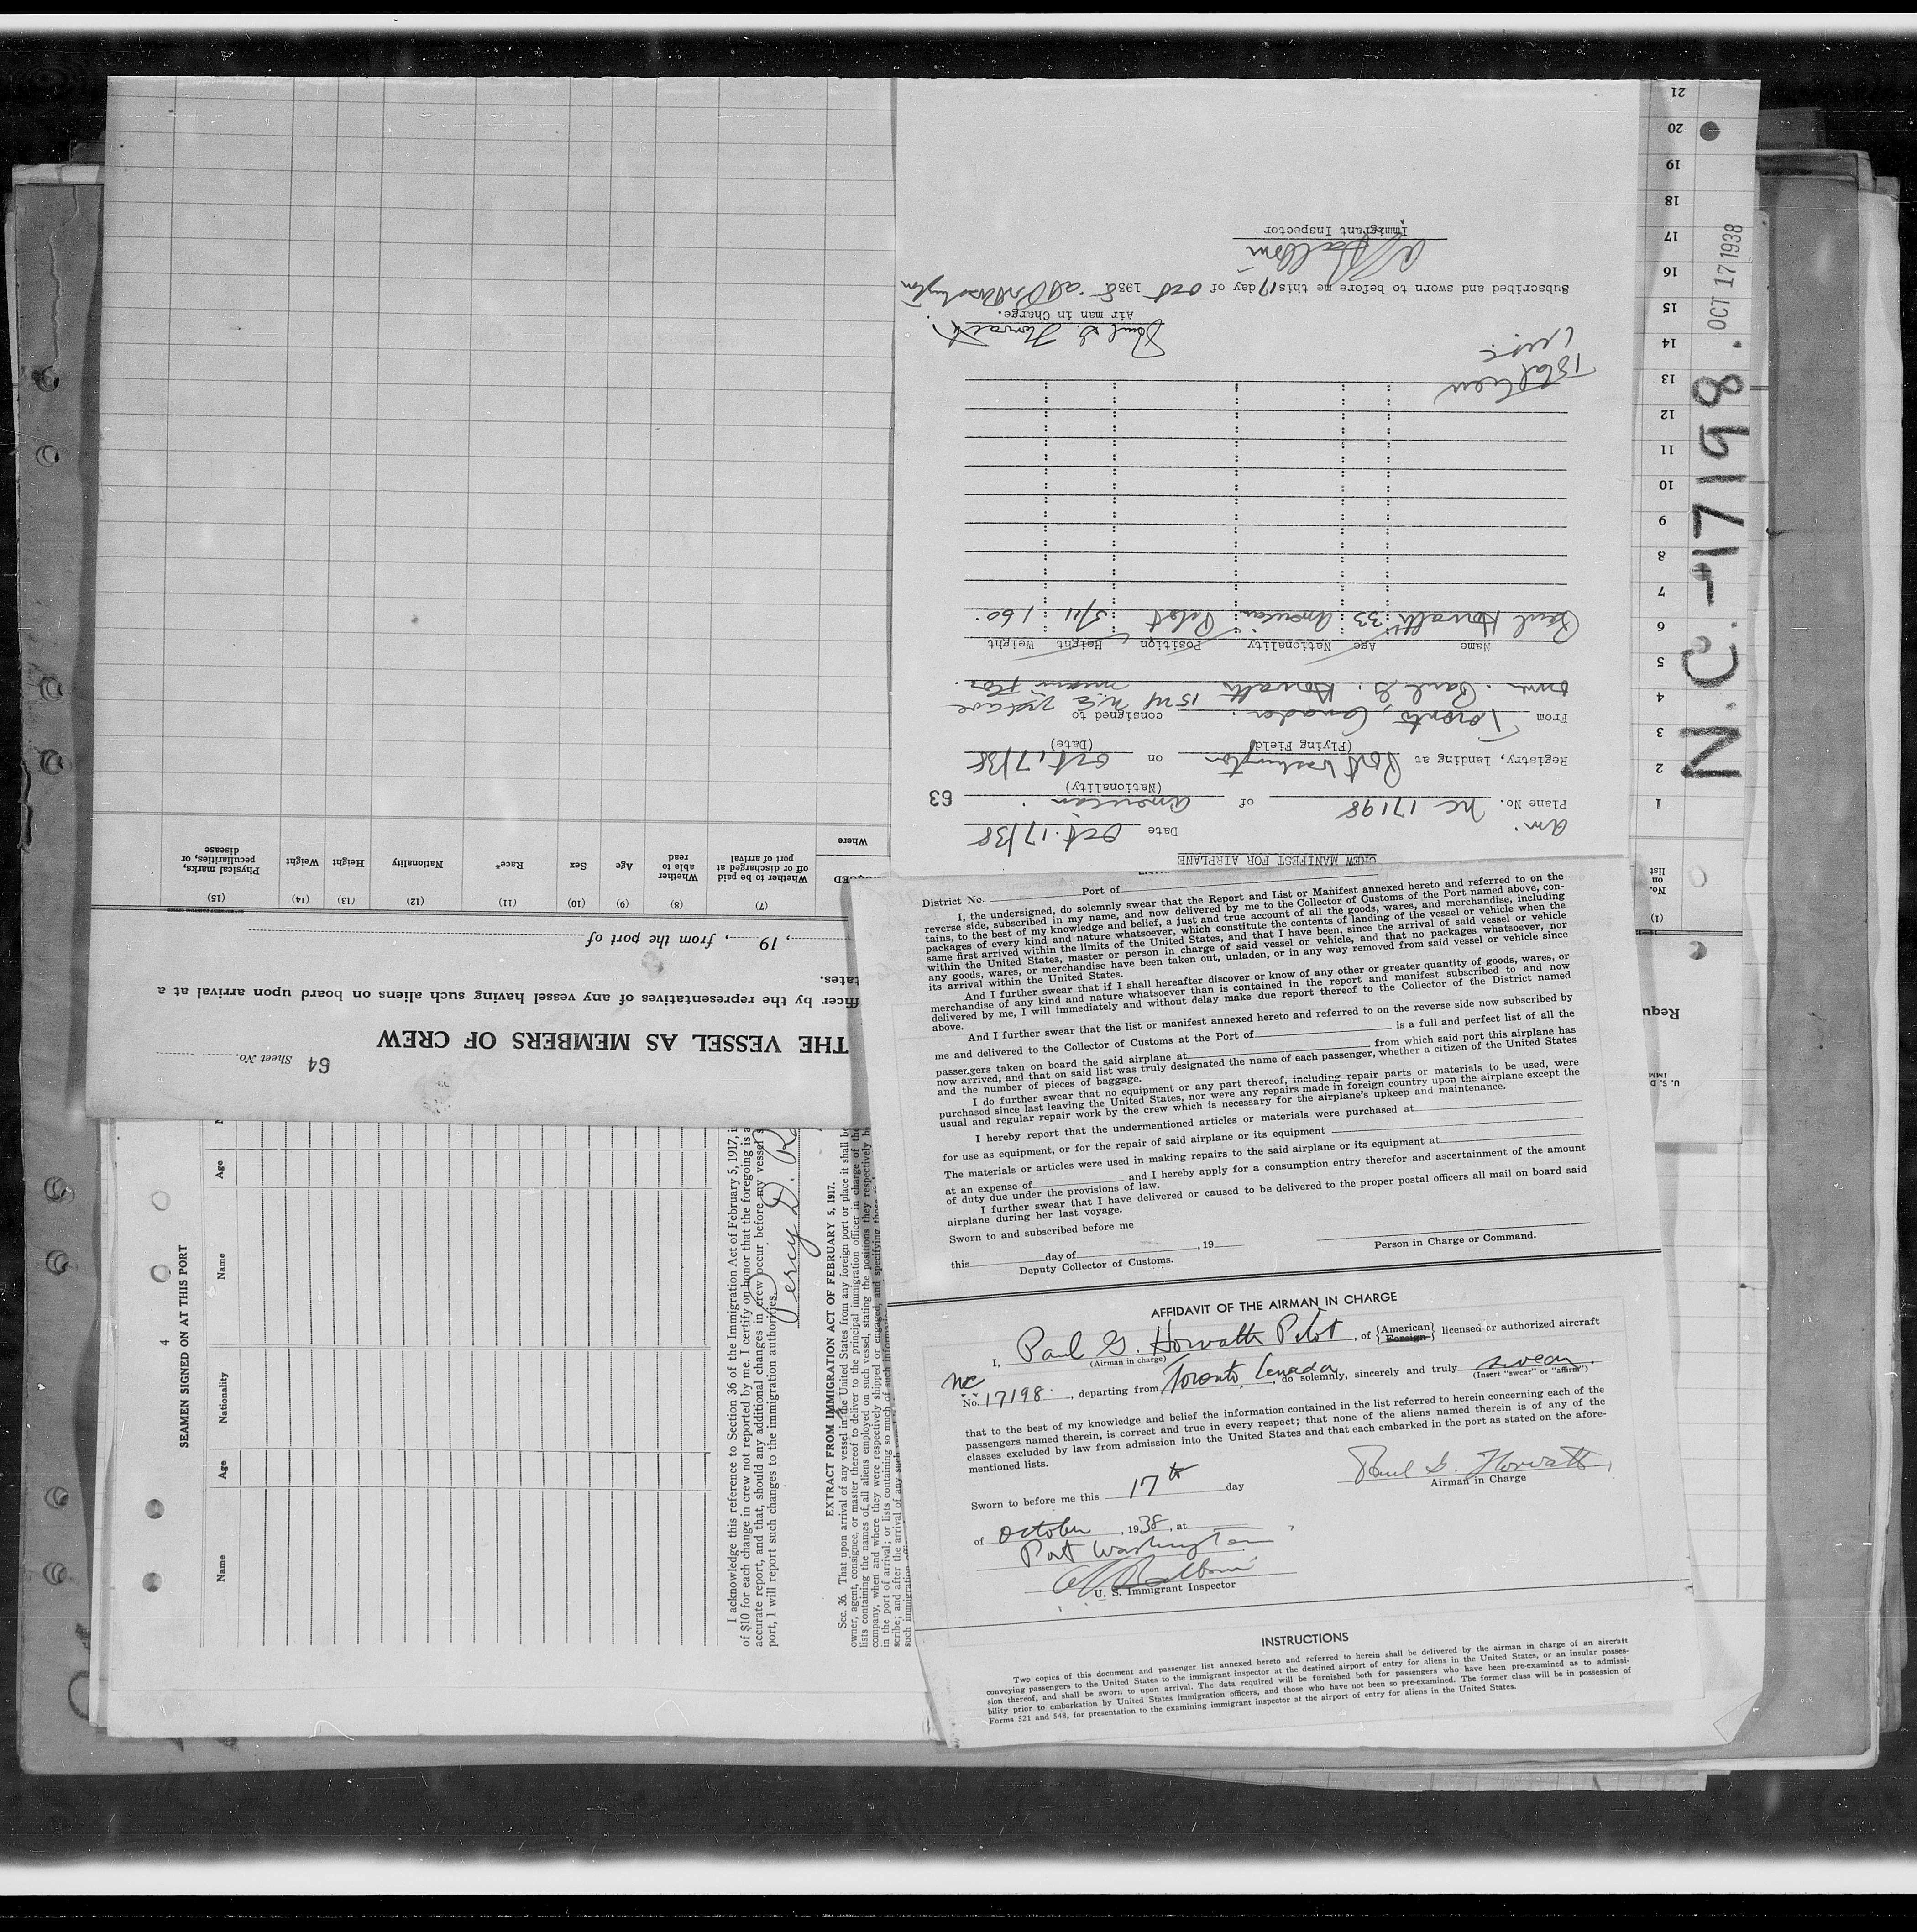 CREW MANIFEST FOR AIRPLANE
Date Oct. 17/38
Am.
Plane No. NC 17198 of American 63
(Nationality)
Registry, landing at Port Washington on Oct. 17/38
(Flying Field) (Date)
From Toronto, Canada. consigned to
Owner. Paul G. Horvath
Name Age Nationality Position Height Weight
Paul Horvath 33 American Pilot 5/11 160
Total Crew
Paul G. Horvath
Air man in Charge.
Subscribed and sworn to before me this 17 day of Oct 1938 at Pt Washington
Immigrant Inspector
N.C.-17198.
OCT 17 1938
(1)
No.
on
list
1
2
3
4
5
6
7
8
9
10
11
12
13
14
15
16
17
18
19
20
21
Requ
U. S. D
IMM
64 Sheet No.
THE VESSEL AS MEMBERS OF CREW
fficer by the representatives of any vessel having such aliens on board upon arrival at a
tates.
, 19 , from the port of
(7) (8) (9) (10) (11) (12) (13) (14) (15)
Where
Whether to be paid
off or discharged at
port of arrival
Whether
able to
read
Age
Sex
Race*
Nationality
Height
Weight
Physical marks,
peculiarities, or
disease
District No. Port of
I, the undersigned, do solemnly swear that the Report and List or Manifest annexed hereto and referred to on the
reverse side, subscribed in my name, and now delivered by me to the Collector of Customs of the Port named above, con-
tains, to the best of my knowledge and belief, a just and true account of all the goods, wares, and merchandise, including
packages of every kind and nature whatsoever, which constitute the contents of landing of the vessel or vehicle when the
same first arrived within the limits of the United States, and that I have been, since the arrival of said vessel or vehicle
within the United States, master or person in charge of said vessel or vehicle, and that no packages whatsoever, nor
any goods, wares, or merchandise have been taken out, unladen, or in any way removed from said vessel or vehicle since
its arrival within the United States.
And I further swear that if I shall hereafter discover or know of any other or greater quantity of goods, wares, or
merchandise of any kind and nature whatsoever than is contained in the report and manifest subscribed to and now
delivered by me, I will immediately and without delay make due report thereof to the Collector of the District named
above.
And I further swear that the list or manifest annexed hereto and referred to on the reverse side now subscribed by
me and delivered to the Collector of Customs at the Port of is a full and perfect list of all the
passengers taken on board the said airplane at from which said port this airplane has
now arrived, and that on said list was truly designated the name of each passenger, whether a citizen of the United States
and the number of pieces of baggage.
I do further swear that no equipment or any part thereof, including repair parts or materials to be used, were
purchased since last leaving the United States, nor were any repairs made in foreign country upon the airplane except the
usual and regular repair work by the crew which is necessary for the airplane's upkeep and maintenance.
I hereby report that the undermentioned articles or materials were purchased at
for use as equipment, or for the repair of said airplane or its equipment
The materials or articles were used in making repairs to the said airplane or its equipment at
at an expense of and I hereby apply for a consumption entry therefor and ascertainment of the amount
of duty due under the provisions of law.
I further swear that I have delivered or caused to be delivered to the proper postal officers all mail on board said
airplane during her last voyage.
Sworn to and subscribed before me
this day of , 19
Deputy Collector of Customs. Person in Charge or Command.
AFFIDAVIT OF THE AIRMAN IN CHARGE
I, Paul G. Horvath Pilot, of {American} {Foreign} licensed or authorized aircraft
(Airman in charge)
NC
No. 17198, departing from Toronto, Canada, do solemnly, sincerely and truly swear.
(Insert "swear" or "affirm")
that to the best of my knowledge and belief the information contained in the list referred to herein concerning each of the
passengers named therein, is correct and true in every respect; that none of the aliens named therein is of any of the
classes excluded by law from admission into the United States and that each embarked in the port as stated on the afore-
mentioned lists.
Sworn to before me this 17th day
Paul G. Horvath
Airman in Charge
of October, 1938, at
Port Washington
U. S. Immigrant Inspector
INSTRUCTIONS
Two copies of this document and passenger list annexed hereto and referred to herein shall be delivered by the airman in charge of an aircraft
conveying passengers to the United States to the immigrant inspector at the destined airport of entry for aliens in the United States, or an insular posses-
sion thereof, and shall be sworn to upon arrival. The data required will be furnished both for passengers who have been pre-examined as to admissi-
bility prior to embarkation by United States immigration officers, and those who have not been so pre-examined. The former class will be in possession of
Forms 521 and 548, for presentation to the examining immigrant inspector at the airport of entry for aliens in the United States.
4
SEAMEN SIGNED ON AT THIS PORT
Name Age Nationality Name Age
I acknowledge this reference to Section 36 of the Immigration Act of February 5, 1917,
of $10 for each change in crew not reported by me. I certify on honor that the foregoing is a
accurate report, and that, should any additional changes in crew occur before my vessel
port, I will report such changes to the immigration authorities.
Percy D.
EXTRACT FROM IMMIGRATION ACT OF FEBRUARY 5, 1917.
Sec. 36. That upon arrival of any vessel in the United States from any foreign port or place it shall be
owner, agent, consignee, or master thereof to deliver to the principal immigration officer in charge of the
lists containing the names of all aliens employed on such vessel, stating the positions they respectively h
company, when and where they were respectively shipped or engaged, and specifying those
in the port of arrival; or lists containing so much of such information
scribe; and after the arrival of any such
such immigration